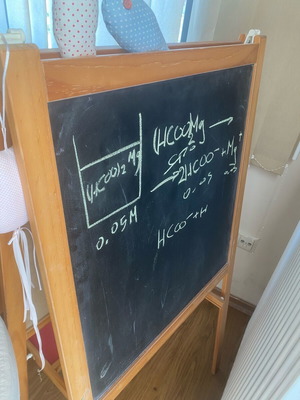 (HCOO)2 Mg
0.05M
(HCOO)2Mg →
→ 2HCOO⁻ + Mg
0.05
HCOO⁻ + H